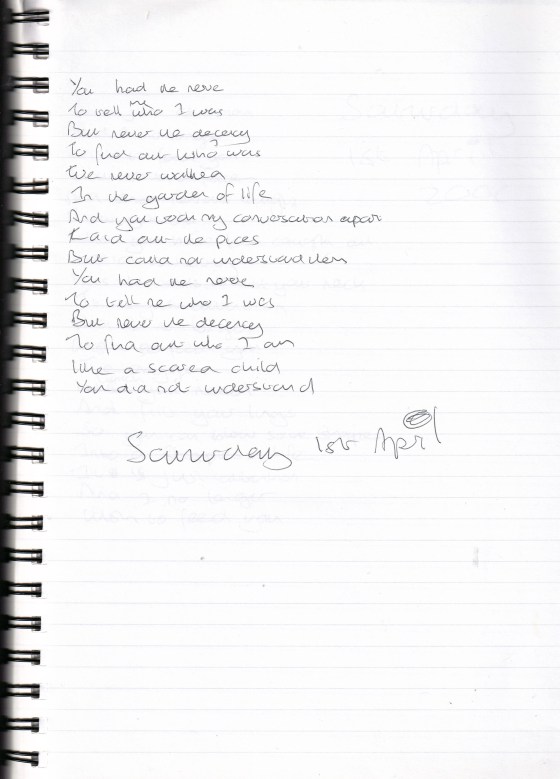 You had the nerve
To tell me who I was
But never the decency
To find out who I was
We never walked
In the garden of life
And you took my conversation apart
Laid out the pieces
But could not understand them
You had the nerve
To tell me who I was
But never the decency
To find out who I am
Like a scared child
You did not understand
Saturday 1st April